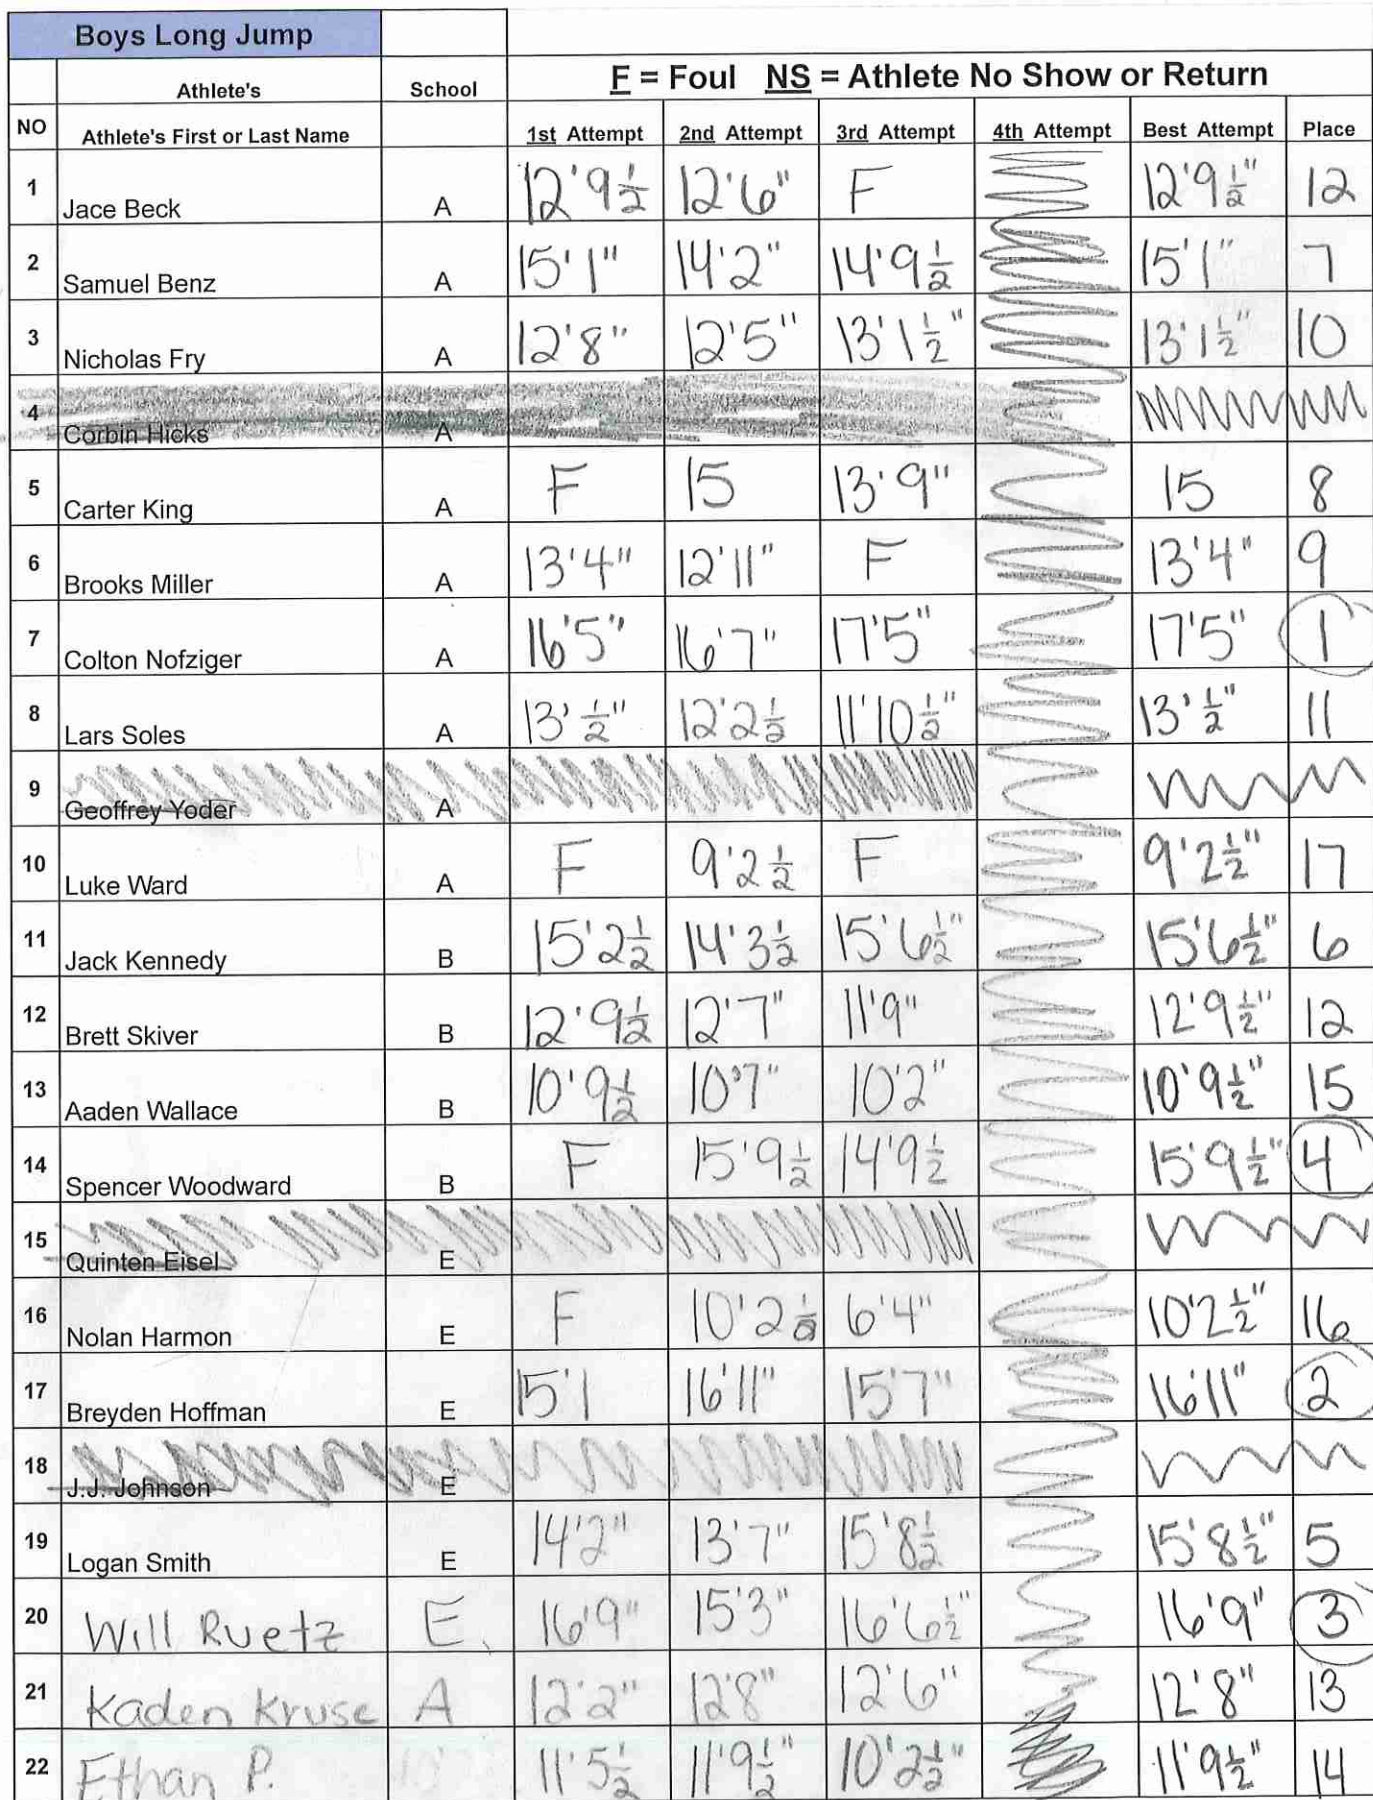 Boys Long Jump
Athlete's School F = Foul NS = Athlete No Show or Return
NO Athlete's First or Last Name 1st Attempt 2nd Attempt 3rd Attempt 4th Attempt Best Attempt Place
1 Jace Beck A 12'9 1/2 12'6" F 12'9 1/2" 12
2 Samuel Benz A 15'1" 14'2" 14'9 1/2 15'1" 7
3 Nicholas Fry A 12'8" 12'5" 13'1 1/2" 13'1 1/2" 10
4 Corbin Hicks A
5 Carter King A F 15 13'9" 15 8
6 Brooks Miller A 13'4" 12'11" F 13'4" 9
7 Colton Nofziger A 16'5" 16'7" 17'5" 17'5" 1
8 Lars Soles A 13' 1/2" 12'2 1/2 11'10 1/2" 13' 1/2" 11
9 Geoffrey Yoder A
10 Luke Ward A F 9'2 1/2 F 9'2 1/2" 17
11 Jack Kennedy B 15'2 1/2 14'3 1/2 15'6 1/2" 15'6 1/2" 6
12 Brett Skiver B 12'9 1/2 12'7" 11'9" 12'9 1/2" 12
13 Aaden Wallace B 10'9 1/2 10'7" 10'2" 10'9 1/2" 15
14 Spencer Woodward B F 15'9 1/2 14'9 1/2 15'9 1/2" 4
15 Quinten Eisel E
16 Nolan Harmon E F 10'2 1/2 6'4" 10'2 1/2" 16
17 Breyden Hoffman E 15'1 16'11" 15'7" 16'11" 2
18 J.J. Johnson E
19 Logan Smith E 14'2" 13'7" 15'8 1/2 15'8 1/2" 5
20 Will Ruetz E 16'9" 15'3" 16'6 1/2" 16'9" 3
21 Kaden Kruse A 12'2" 12'8" 12'6" 12'8" 13
22 Ethan P. 11'5 1/2 11'9 1/2" 10'2 1/2" 11'9 1/2" 14